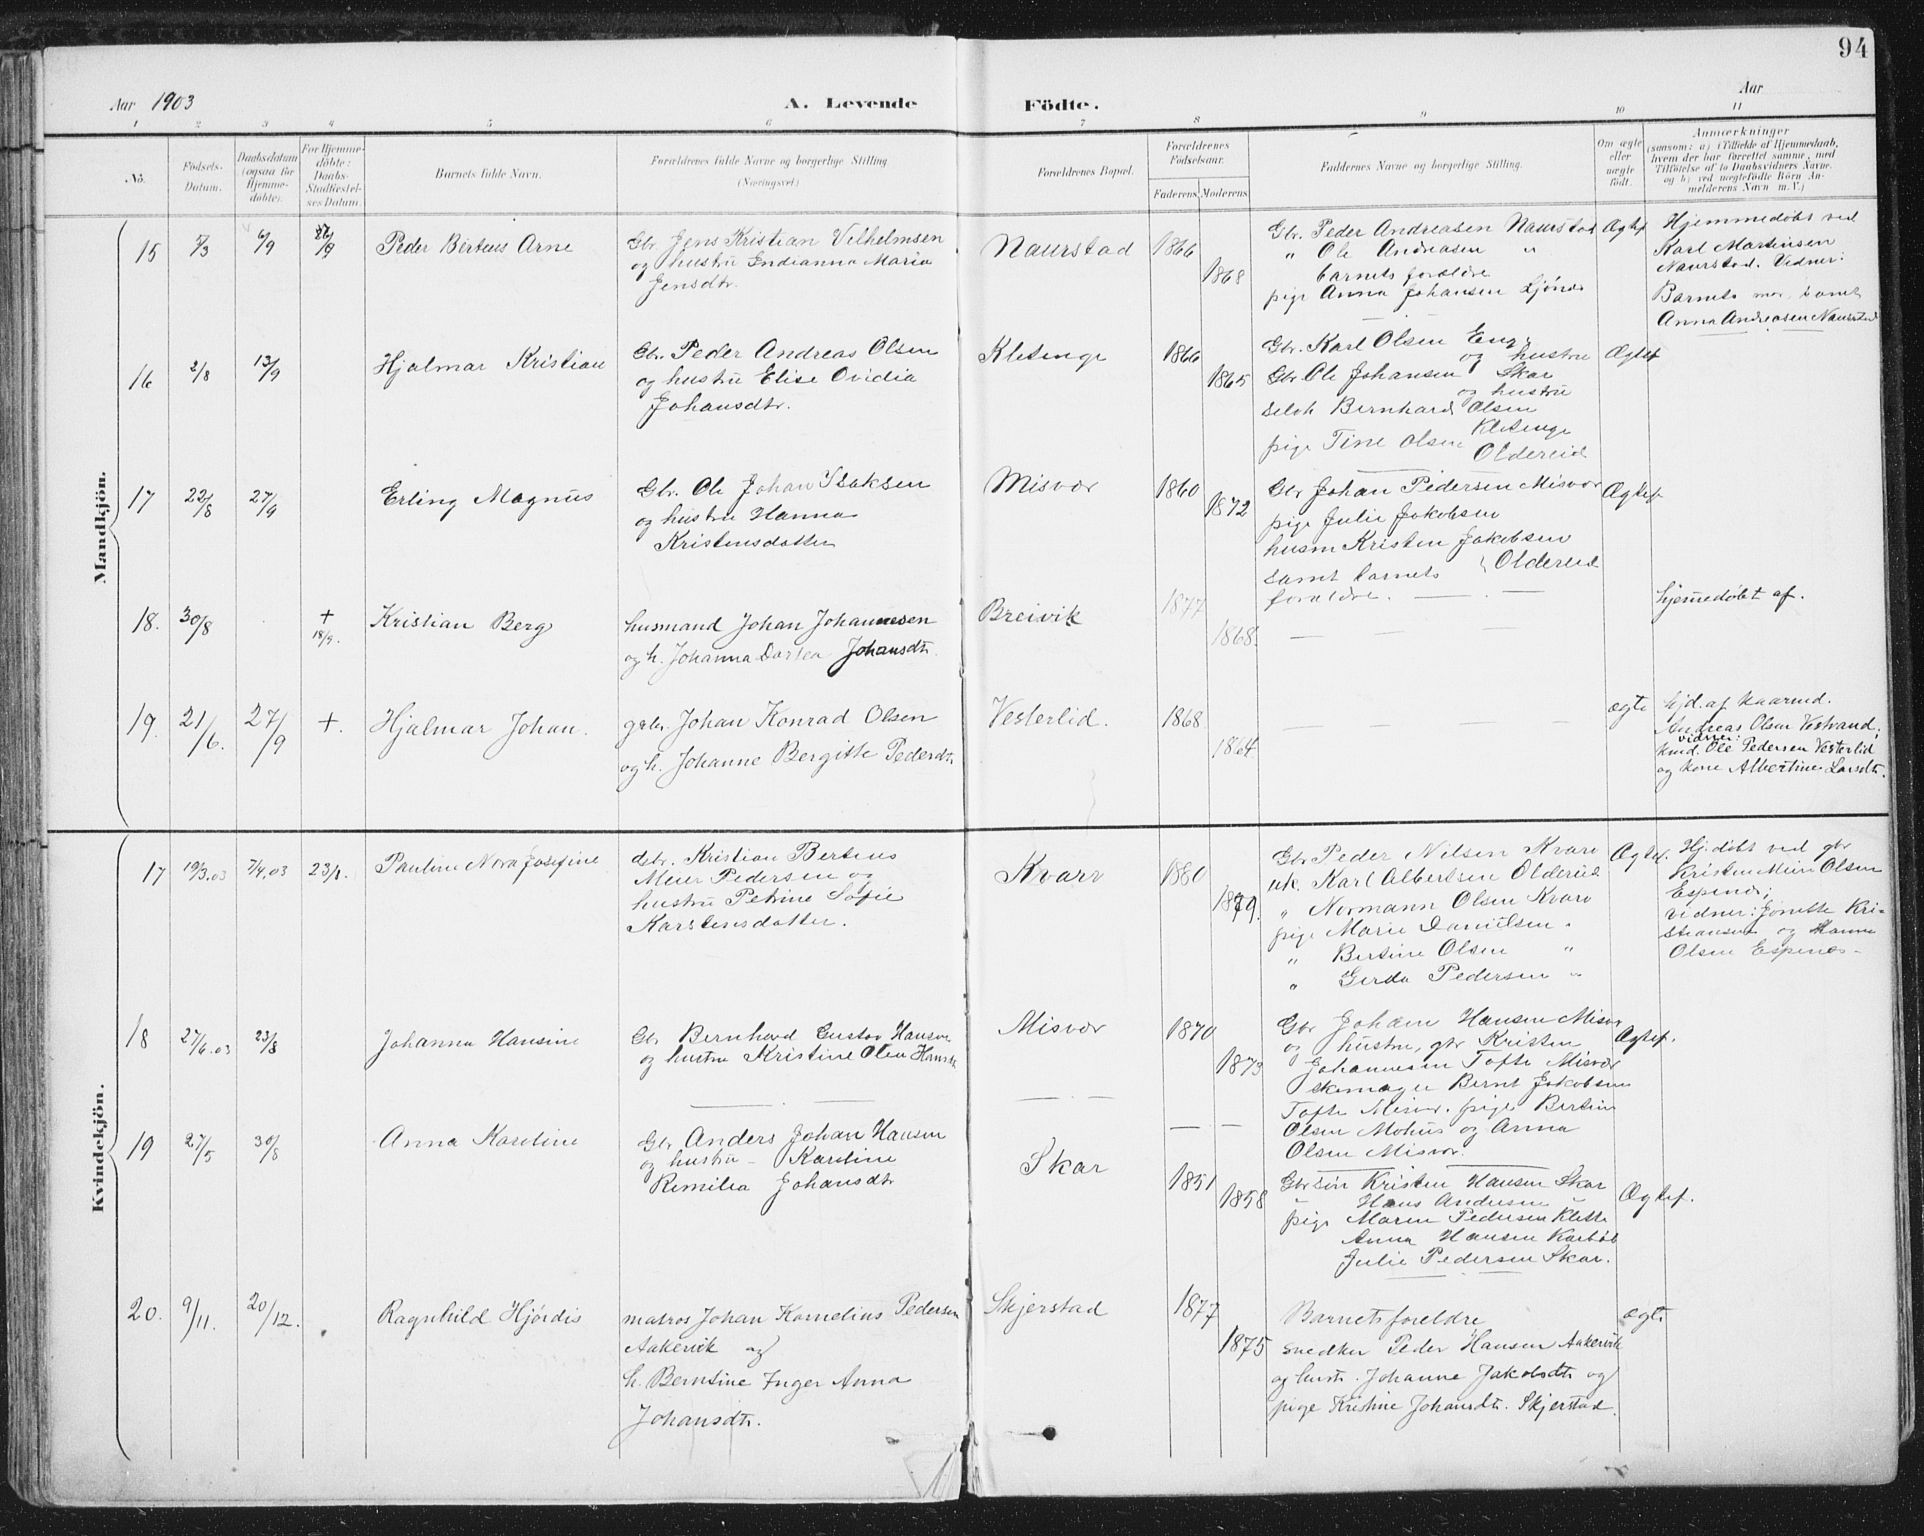 94
Aar 1903
A. Levende Födte.
Aar
1 2 3 4 5 6 7 8 9 10 11
No.
Födsels-Datum.
Daabsdatum (ogsaa for Hjemmedöbte).
For Hjemmedöbte: Daabs-Stadfæstelses Datum.
Barnets fulde Navn.
Forældrenes fulde Navne og borgerlige Stilling (Næringsvei)
Forældrenes Bopæl.
Forældrenes Födselsaar.
Faderens Moderens
Faddernes Navne og borgerlige Stilling.
Om ægte eller uægte födt.
Anmærkninger
(saasom: a) i Tilfælde af Hjemmedaab, hvem der har forrettet samme, med Tilföielse af to Daabsvidners Navne. og b) ved uægtefödte Börn Anmelderens Navn m. V.)
Mandkjön.
15 7/3 6/9 Peder Berteus Arne
Gbr. Jens Kristian Vilhelmsen
og hustru Indianna Maria
Jensdtr.
Naurstad 1866
1868
Gbr. Peder Andreasen Naurstad
" Ole Andreasen "
barnets forældre
pige Anna Johansen Ljønes
Ægtef
Hjemmedøbt ved
Karl Martinsen
Naurstad. Vidner:
Barnets mor, samt
Anna Andreasen Naurstad
16 2/8 13/9 Hjalmar Kristian
Gbr. Peder Andreas Olsen
og hustru Elise Ovidia
Johansdtr.
Kletenge 1866
1865
Gbr. Karl Olsen Eng,
og hustru
Gbr. Ole Johansen Skar
og hustru
selvh Bernhard Olsen
Kletenge
pige Tine Olsen
Oldereid
Ægtef
17 22/8 27/9 Erling Magnus
Gbr. Ole Johan Isaksen
og hustru Hanna
Kristensdatter
Misvær 1860
1872
Gbr Johan Pedersen Misvær
pige Julie Jakobsen
husm Kristen Jakobsen
Oldereid
samt barnets
forældre.
Ægtef
18. 30/8 + 18/9. Kristian Berg
husmand Johan Johannesen
og h. Johanna Dortea Johansdtr.
Breivik 1877
1868.
hjemmedøbt af.
19. 21/6. 27/9 +. Hjalmar Johan.
gbr. Johan Konrad Olsen
og h. Johanne Bergitte Pedersdtr
Vesterlid. 1868
1864
ægte
hjd. af kaarmd.
Andreas Olsen Vestvand;
vidner:
kmd. Ole Pedersen Vesterlid
og kone Albertine Larsdtr.
Kvindekjön.
17 19/3.03 7/4.03 23/8. Pauline Nora Josefine
Gbr. Kristian Berteus
Meier Pedersen og
hustru Petrine Sofie
Karstensdatter.
Kvarv 1880
1879.
Gbr Peder Nilsen Kvarv
uk. Karl Albertsen Oldereid
" Normann Olsen Kvarv
pige Marie Danielsen "
" Bertine Olsen "
" Gerda Pedersen "
Ægtef.
Hj. døbt ved gbr
Kristen Meier Olsen
Espenes;
vidner: Jonette Kri-
stiansen og Hanna
Olsen Espenes
18 27/6.03 23/8 Johanna Hansine
Gbr Bernhard Gustav Hansen
og hustru Kristine Olea Hansdtr
Misvær 1870
1873
Gbr Johan Hansen Misvær
og hustru, gbr Kristen
Johannesen Tofte Misvær
skomager Bernt Jakobsen
Tofte Misvær. pige Bertine
Olsen Mohus og Anna
Olsen Misvær.
Ægtef.
19 27/5 30/8 Anna Karoline
Gbr Anders Johan Hansen
og hustru Karoline
Remilia Johansdtr
Skar 1851
1858
Gbr søn Kristen Hansen Skar
Hans Andersen "
pige Maren Pedersen Klette
Anna Hansen Karbøl
Julie Pedersen Skar.
Ægtef.
20. 9/11. 20/12. Ragnhild Hjørdis
matros Johan Kornelius Pedersen
Aakervik og
h. Berntine Inger Anna
Johansdtr.
Skjerstad 1877
1875
Barnets foreldre
snedker Peder Hansen Aakervik
og hust. Johanne Jakobsdtr og
pige Kristine Johansdtr. Skjerstad.
ægte